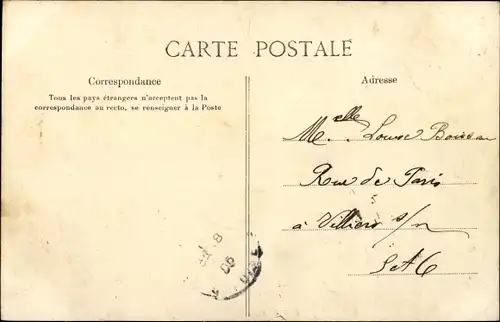 CARTE POSTALE
Correspondance
Tous les pays étrangers n'acceptent pas la
correspondance au recto, se renseigner à la Poste
Adresse
Melle Louise
Rue de Paris
à Villiers s/m